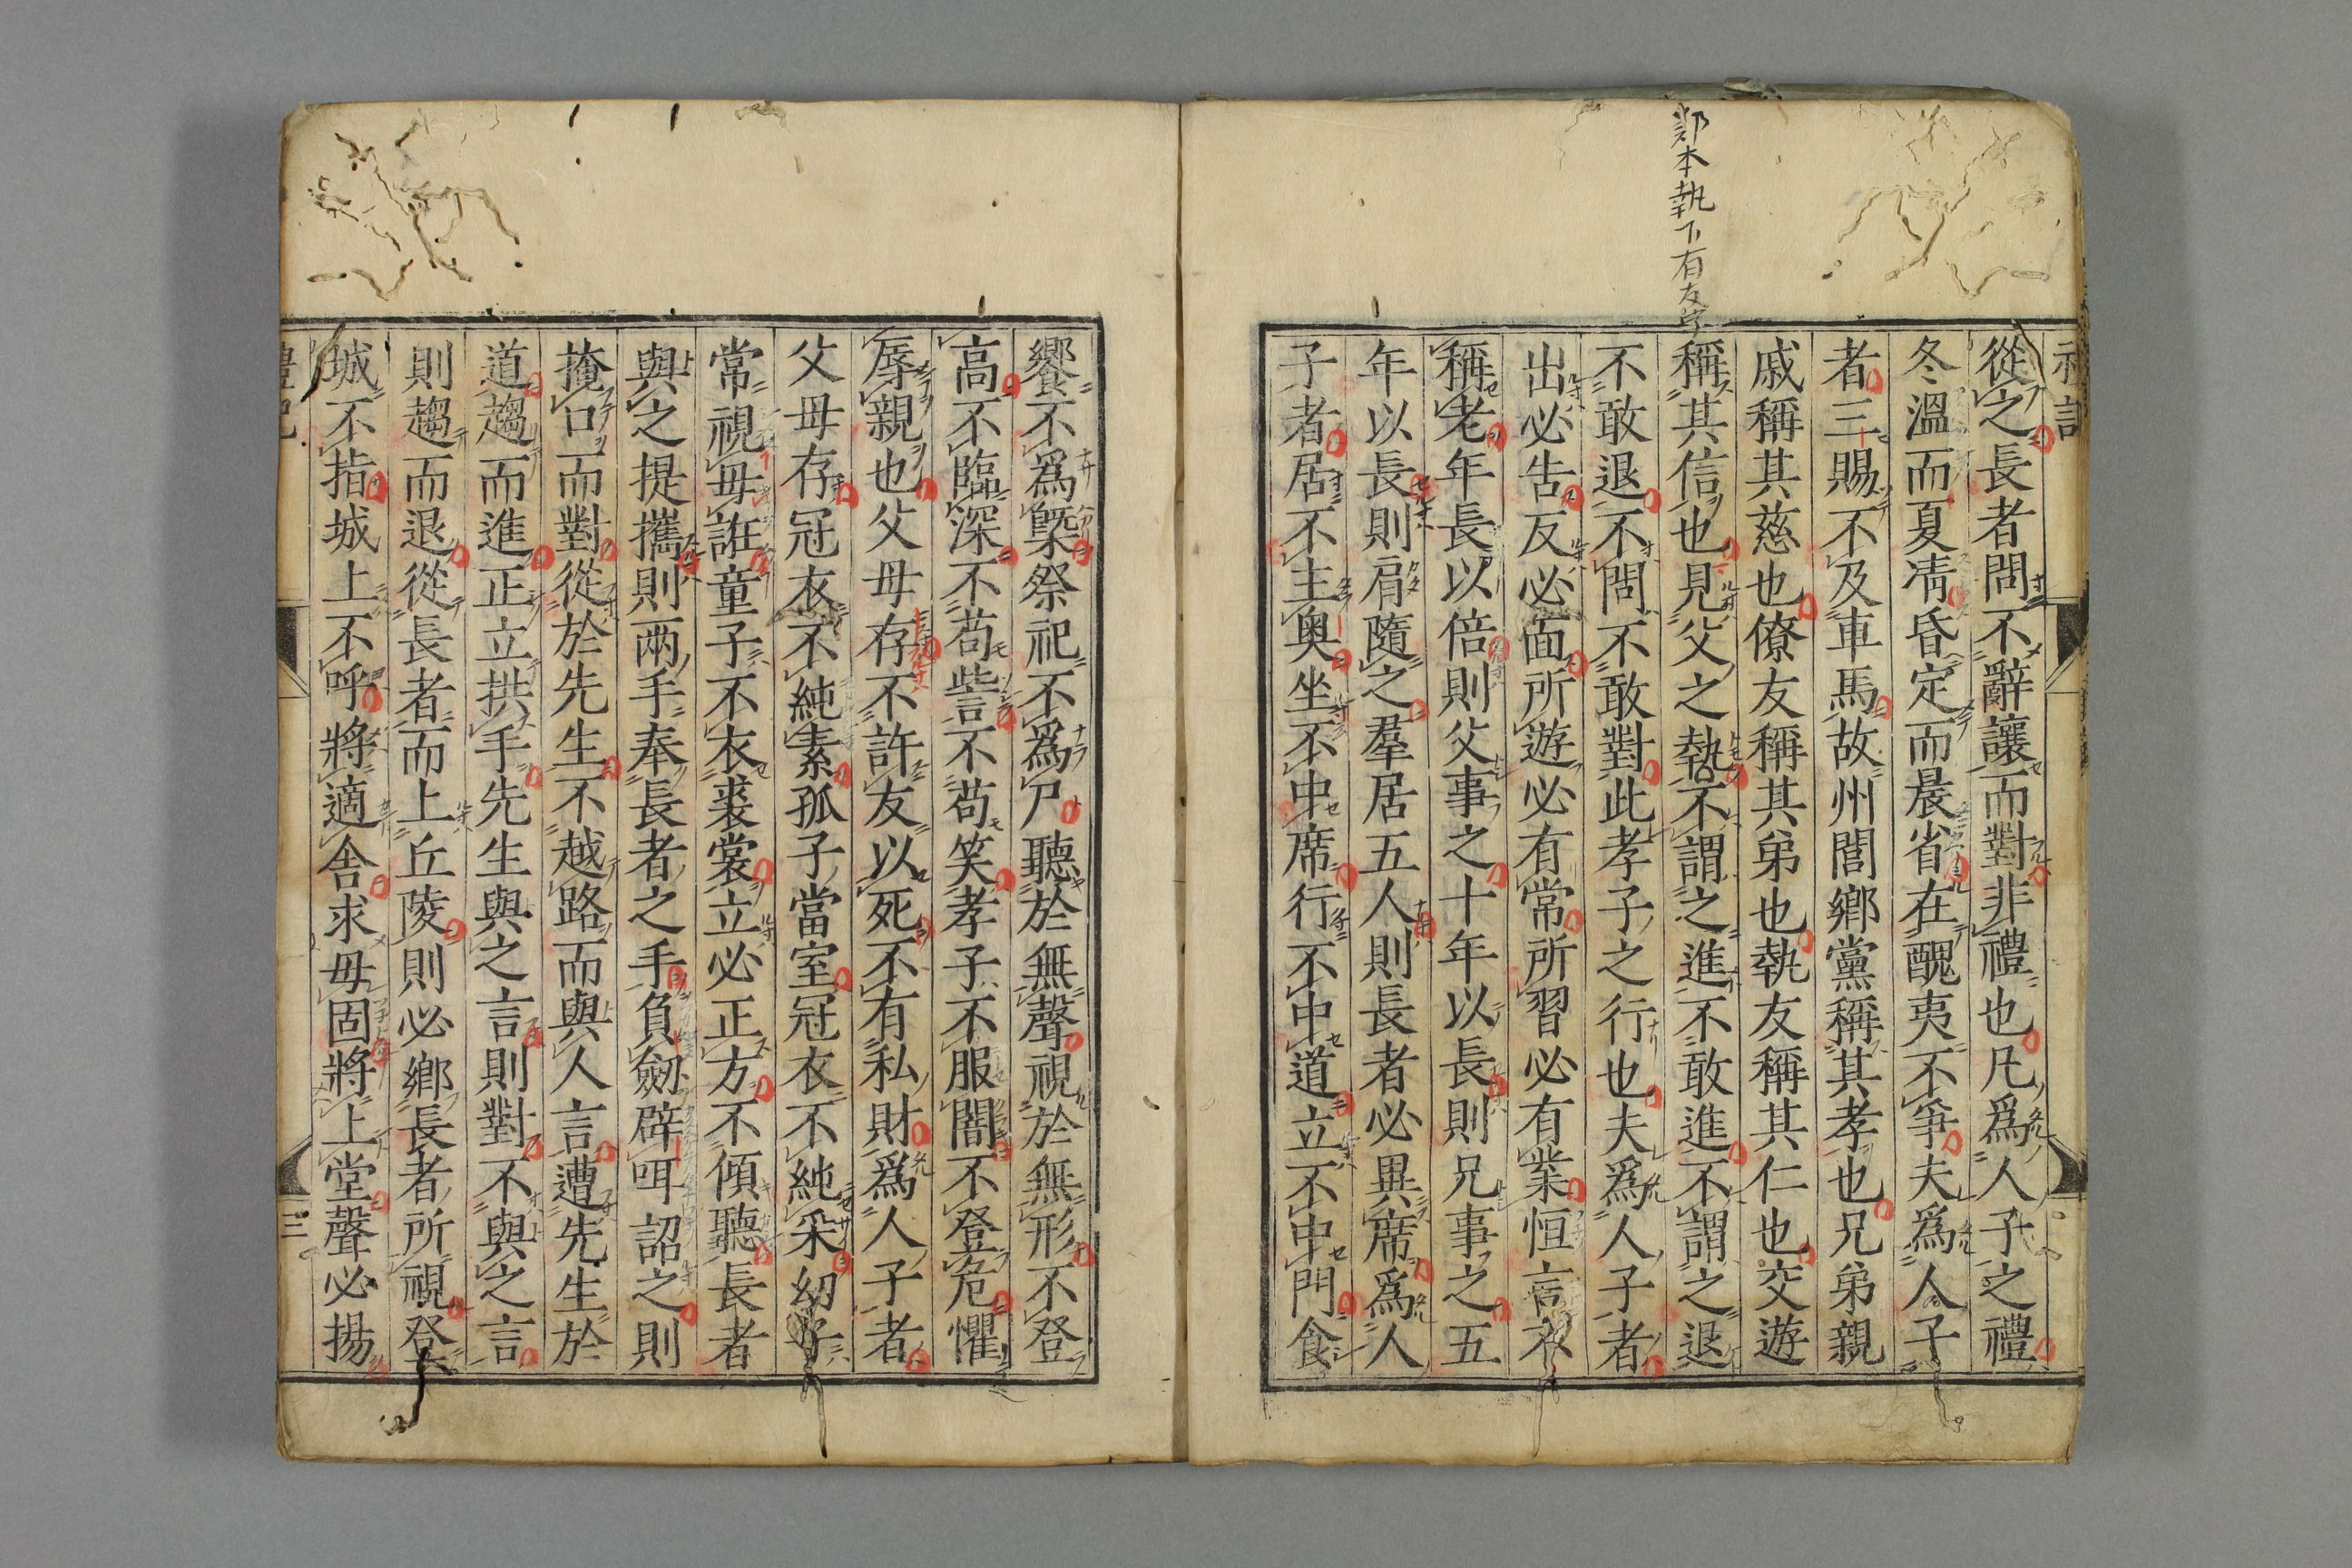 鄭本執下有友字
從之長者問不辭讓而對非禮也凡爲人子之禮
冬溫而夏凊昏定而晨省在醜夷不爭夫爲人子
者三賜不及車馬故州閭鄉黨稱其孝也兄弟親
戚稱其慈也僚友稱其弟也執友稱其仁也交遊
稱其信也見父之執不謂之進不敢進不謂之退
不敢退不問不敢對此孝子之行也夫爲人子者
出必告反必面所遊必有常所習必有業恒言不
稱老年長以倍則父事之十年以長則兄事之五
年以長則肩隨之羣居五人則長者必異席爲人
子者居不主奧坐不中席行不中道立不中門食
饗不爲槩祭祀不爲尸聽於無聲視於無形不登
高不臨深不苟訾不苟笑孝子不服闇不登危懼
辱親也父母存不許友以死不有私財爲人子者
父母存冠衣不純素孤子當室冠衣不純采幼子
常視毋誑童子不衣裘裳立必正方不傾聽長者
與之提攜則兩手奉長者之手負劒辟咡詔之則
掩口而對從於先生不越路而與人言遭先生於
道趨而進正立拱手先生與之言則對不與之言
則趨而退從長者而上丘陵則必鄉長者所視登
城不指城上不呼將適舍求毋固將上堂聲必揚
三